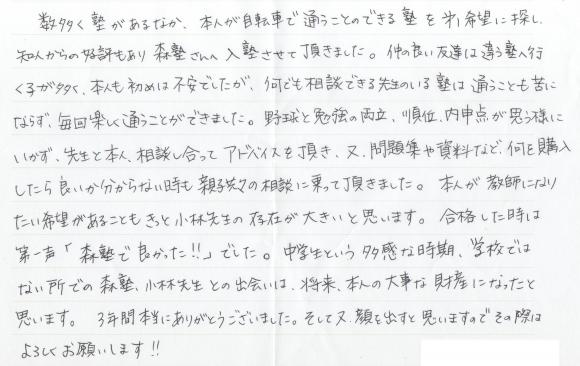 数多く塾があるなか、本人が自転車で通うことのできる塾を第1希望に探し、
知人からの好評もあり森塾さんへ入塾させて頂きました。仲の良い友達は違う塾へ行
く子が多く、本人も初めは不安でしたが、何でも相談できる先生のいる塾は通うことも苦に
ならず、毎回楽しく通うことができました。野球と勉強の両立、順位、内申点が思う様に
いかず、先生と本人、相談し合ってアドバイスを頂き、又、問題集や資料など、何を購入
したら良いか分からない時も親子共々の相談に乗って頂きました。本人が教師になり
たい希望があることもきっと小林先生の存在が大きいと思います。合格した時は
第一声「森塾で良かった!!」でした。中学生という多感な時期、学校では
ない所での森塾、小林先生との出会いは、将来、本人の大事な財産になったと
思います。3年間本当にありがとうございました。そして又、顔を出すと思いますのでその際は
よろしくお願いします!!